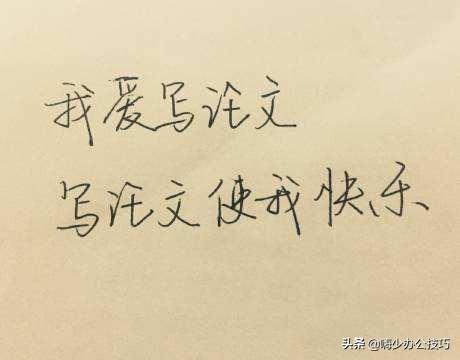 我爱写论文
写论文使我快乐
头条 @嗨少办公技巧